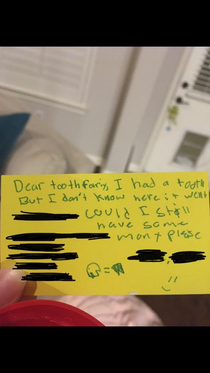 Dear toothfariy, I had a tooth
But I don't know here it went
could I still
have some
mony plese
=
:)